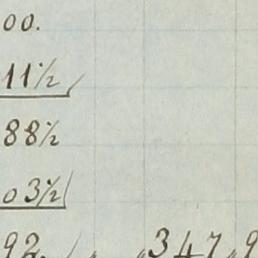 00.
11½
88½
03½
92. 347.9